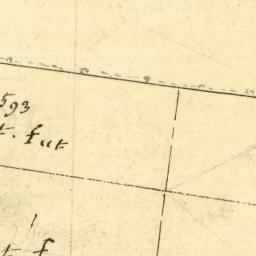 593
t. feet
t f